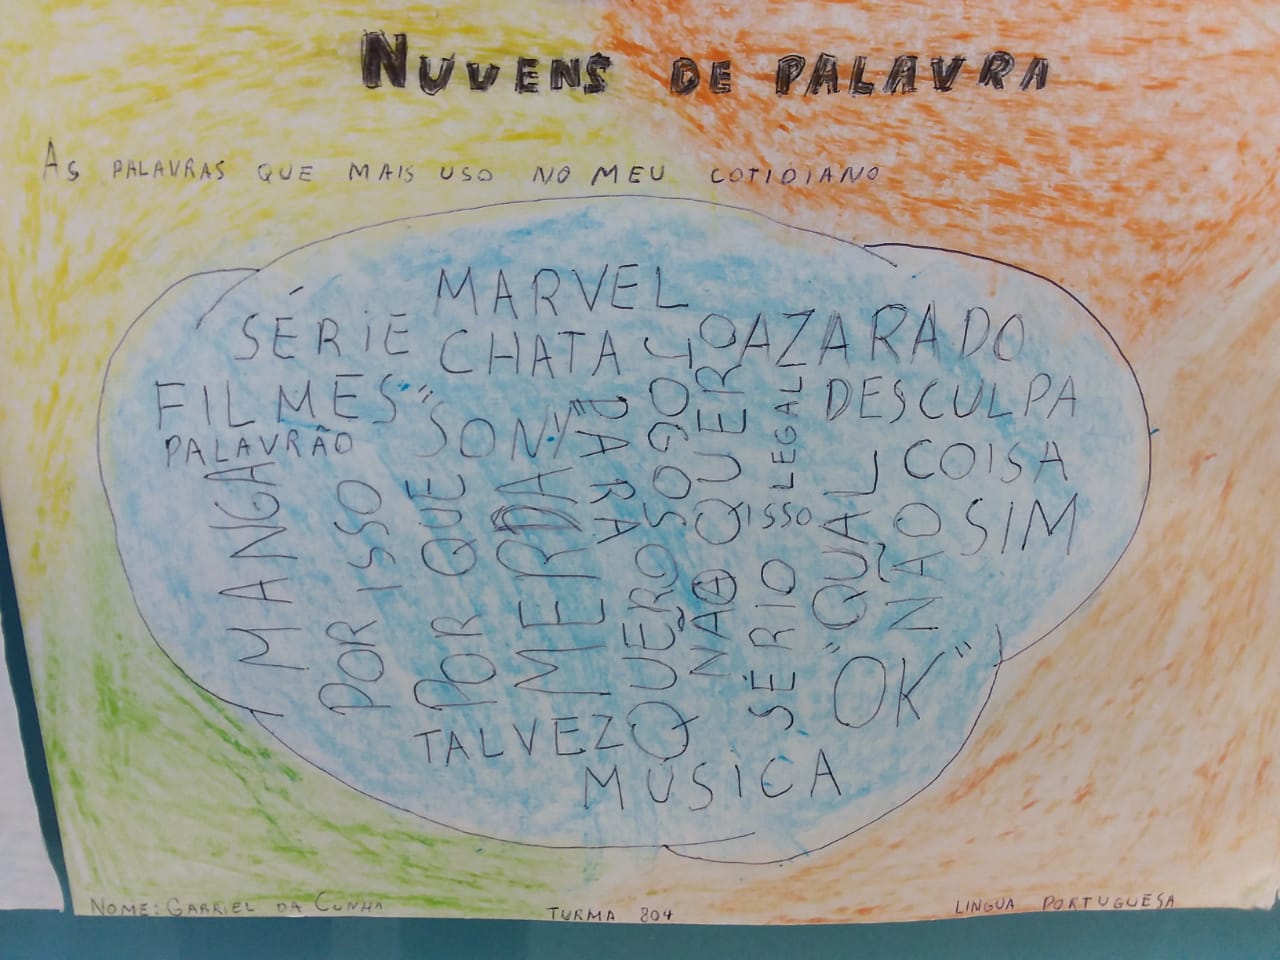 NUVENS DE PALAVRA
AS PALAVRAS QUE MAIS USO NO MEU COTIDIANO
MARVEL
SÉRIE
CHATA
AZARADO
FILMES
"SONY"
DESCULPA
PALAVRÃO
COISA
SIM
MANGA
POR ISSO
POR QUE
MERDA
PARA
JOGOS
QUERO
NÃO QUERO
LEGAL
ISSO
SÉRIO
"QUAL
NÃO
"OK"
TALVEZ
MÚSICA
NOME: GABRIEL DA CUNHA
TURMA 804
LINGUA PORTUGUESA